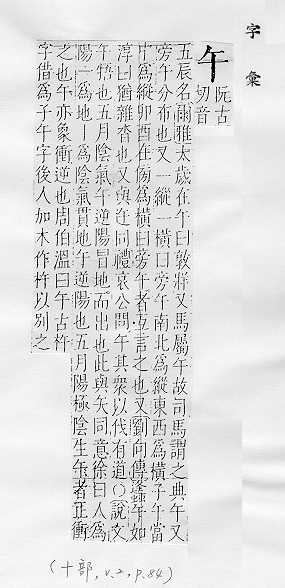 字彙
午
阮古
切音
五辰名爾雅太歲在午曰敦牂又馬屬午故司馬謂之典午又
旁午分布也又一縱一橫曰旁午南北爲縱東西爲橫子午當
中爲縱卯酉在爲橫曰旁午者互言之也又劉向傳蠭午如
淳曰猶雜沓也又與迕同禮哀公問午其衆以伐有道○說文
午啎也五月陰氣午逆陽冒地而出也此與矢同意徐曰人爲
陽一爲地丨爲陰氣貫地午逆陽也五月陽極陰生午者正衝
之也午亦象衝逆也周伯溫曰午古杵
字借爲子午字後人加木作杵以別之
(十部, v.2, p.84)